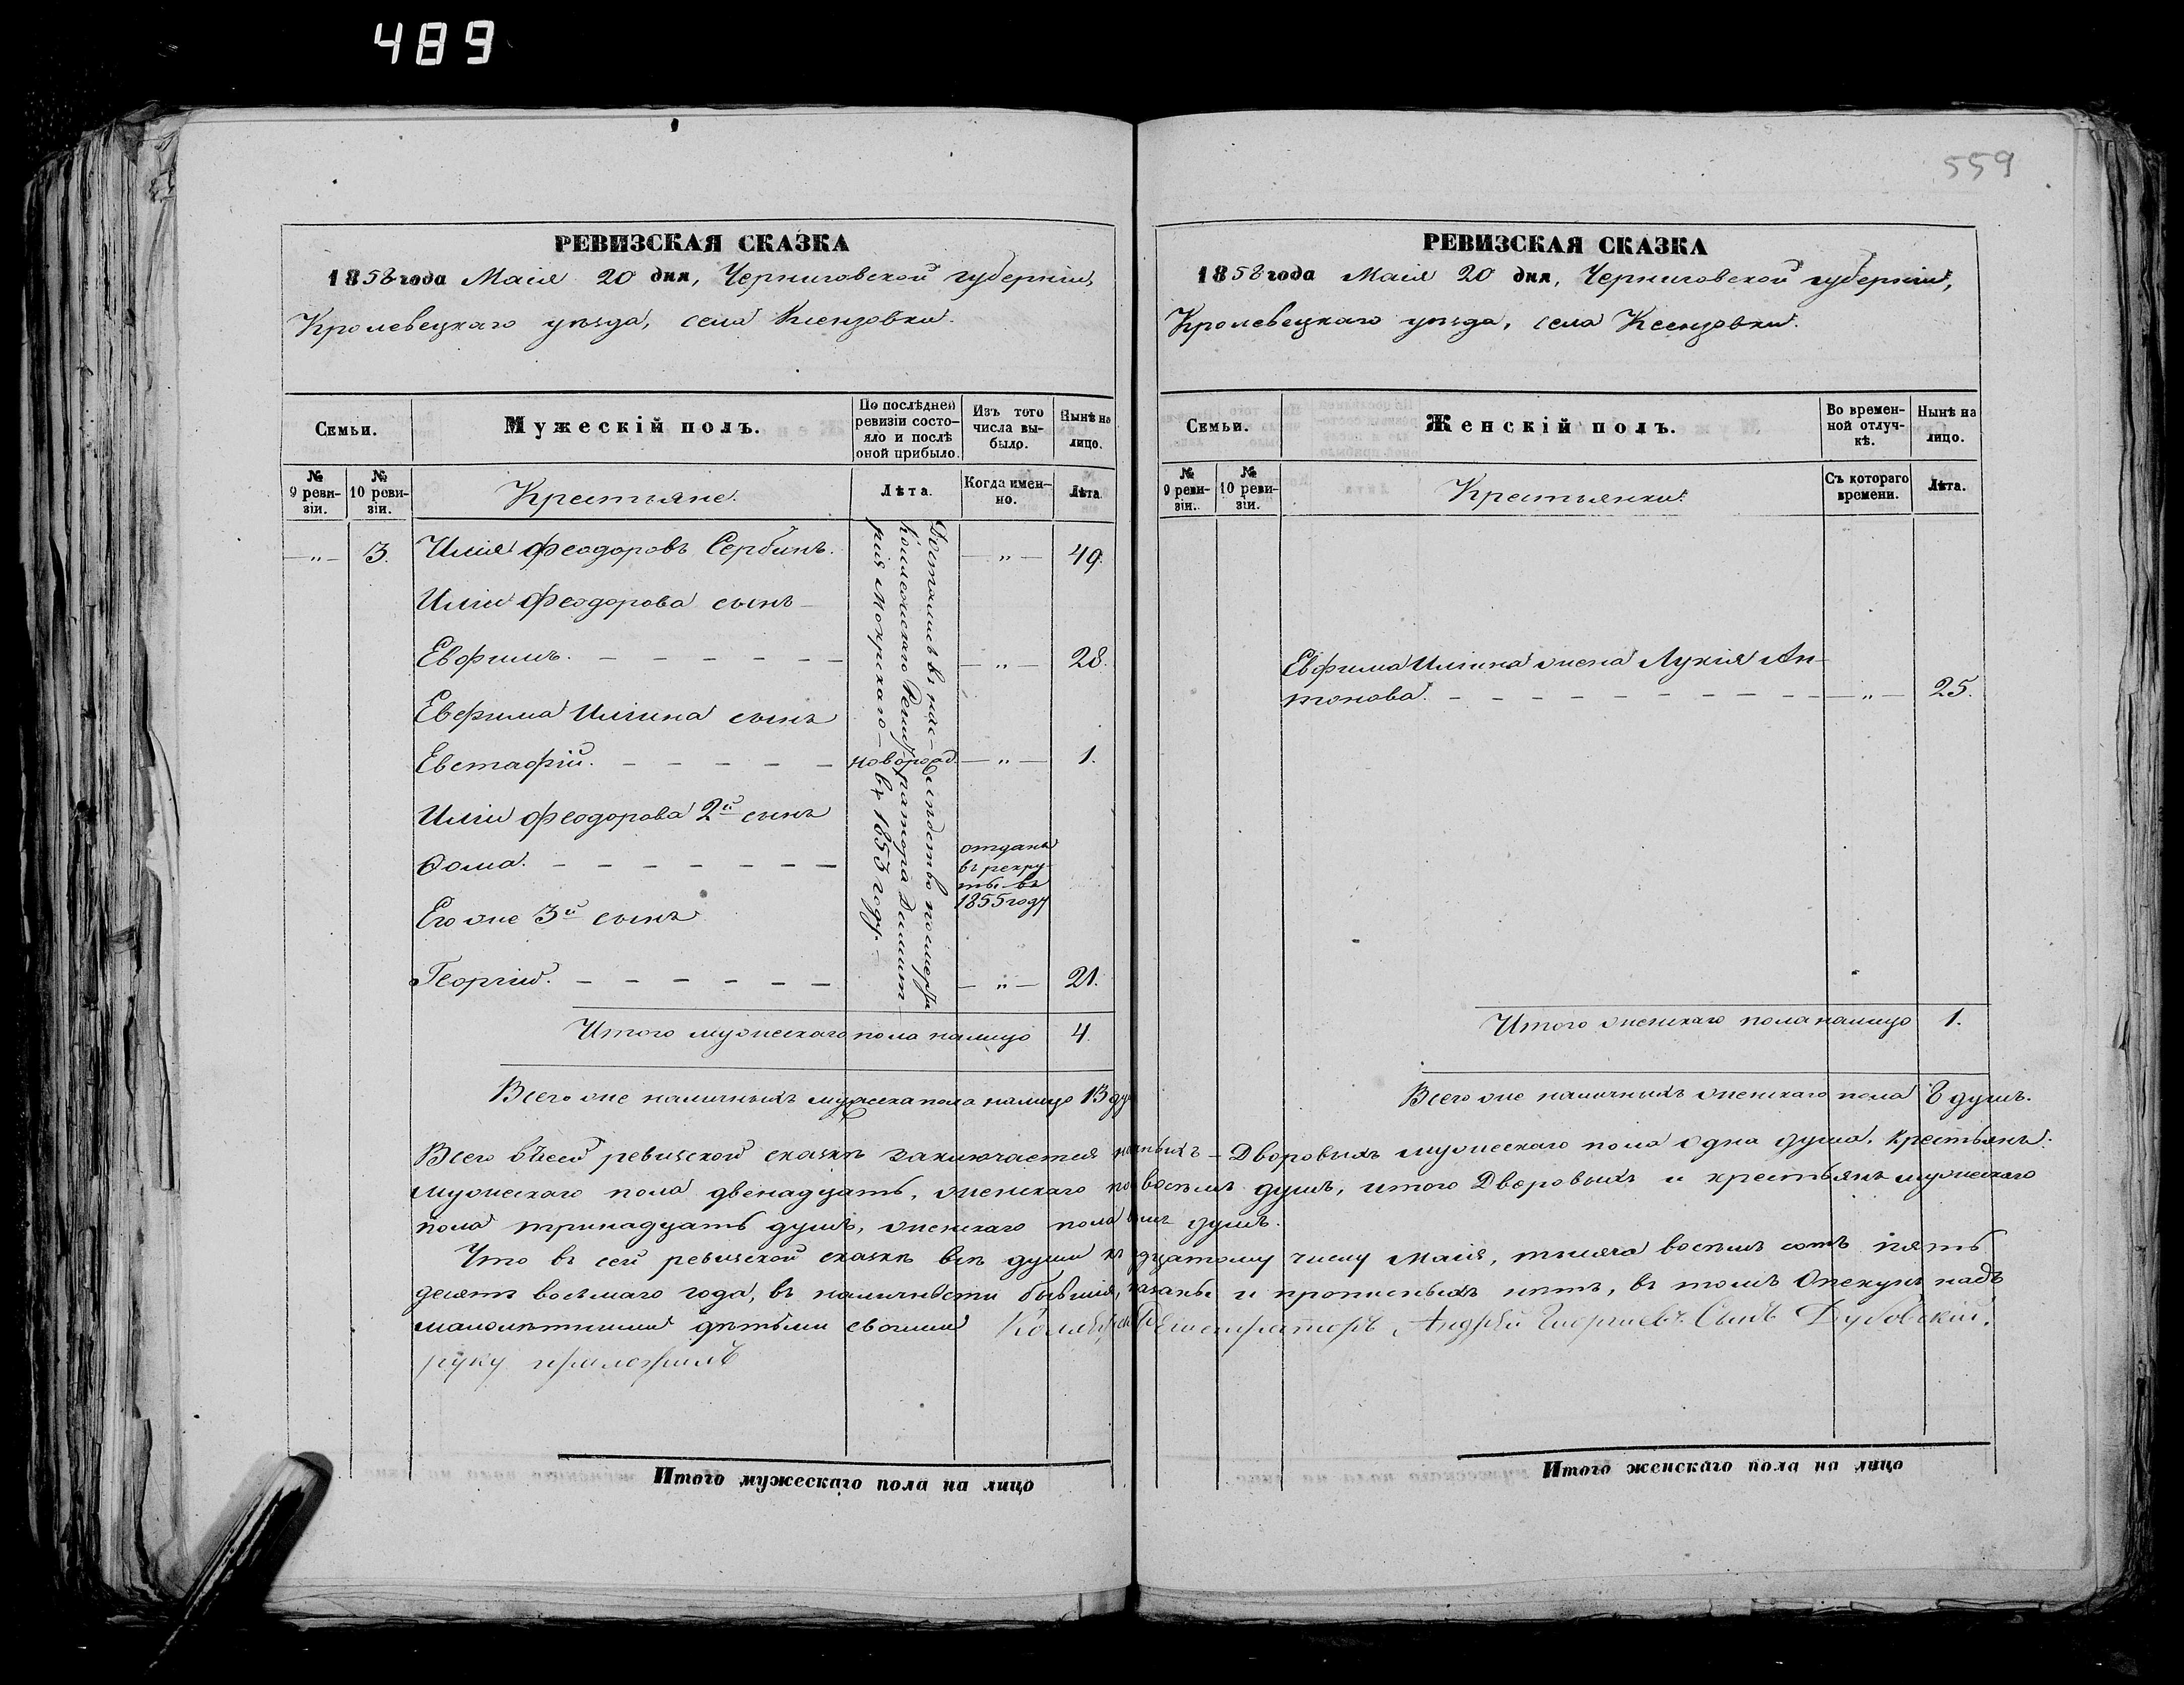 489
559
РЕВИЗСКАЯ СКАЗКА
1858 года Маія 20 дня, Черниговской губерніи,
Кролевецкаго уѣзда, села Ксензовки.
Семьи.
Мужескій полъ.
По послѣдней ревизіи состояло и послѣ оной прибыло.
Изъ того числа выбыло.
Нынѣ на лицо.
№ 9 ревизіи.
№ 10 ревизіи.
Крестьяне.
Лѣта.
Когда именно.
Лѣта.
— „ — 3. Илія Феодоровъ Сербинъ. — „ — 49.
Иліи Феодорова сынъ
Евфимъ. — „ — 28.
Евфима Иліина сынъ
Евстафій. новорожд. — „ — 1.
Иліи Феодорова 2й сынъ
Ѳома. отданъ
въ рекру-
ты въ
1855 году
Его же 3й сынъ
Георгій. — „ — 21.
Достались въ нас- слѣдство по смерти
Коллежскаго Регистратора Димит-
рія Мокрскаго — въ 1853 году. —
Итого мужескаго пола налицо 4.
Всего же наличныхъ мужеска пола налицо 13 ду
РЕВИЗСКАЯ СКАЗКА
1858 года Маія 20 дня, Черниговской губерніи,
Кролевецкаго уѣзда, села Ксензовки.
Семьи.
Женскій полъ.
Во временной отлучкѣ.
Нынѣ на лицо.
№ 9 ревизіи.
№ 10 ревизіи.
Крестьянки.
Съ котораго времени.
Лѣта.
Евфима Иліина жена Лукія Ан-
тонова. — „ — 25.
Итого женскаго пола налицо 1.
Всего же наличныхъ женскаго пола 8 душъ.
Всего въ сей ревизской сказкѣ заключается Дворовыхъ мужескаго пола одна душа, Крестьянъ
мужескаго пола двенадцать, женскаго восемь душъ, итого Дворовыхъ и крестьянъ мужескаго
пола тринадцать душъ, женскаго пола душъ.
Что въ сей ревизской сказкѣ всѣ души числу Маія, тысяча восемь сотъ пять
десятъ восьмаго года, въ наличности бывшія, и прописныхъ нѣтъ, въ томъ Опекунъ надъ
малолѣтними дѣтьми своими Андрей Георгіевъ Сынъ Дубовскій,
руку приложилъ
Итого мужескаго пола на лицо
Итого женскаго пола на лицо